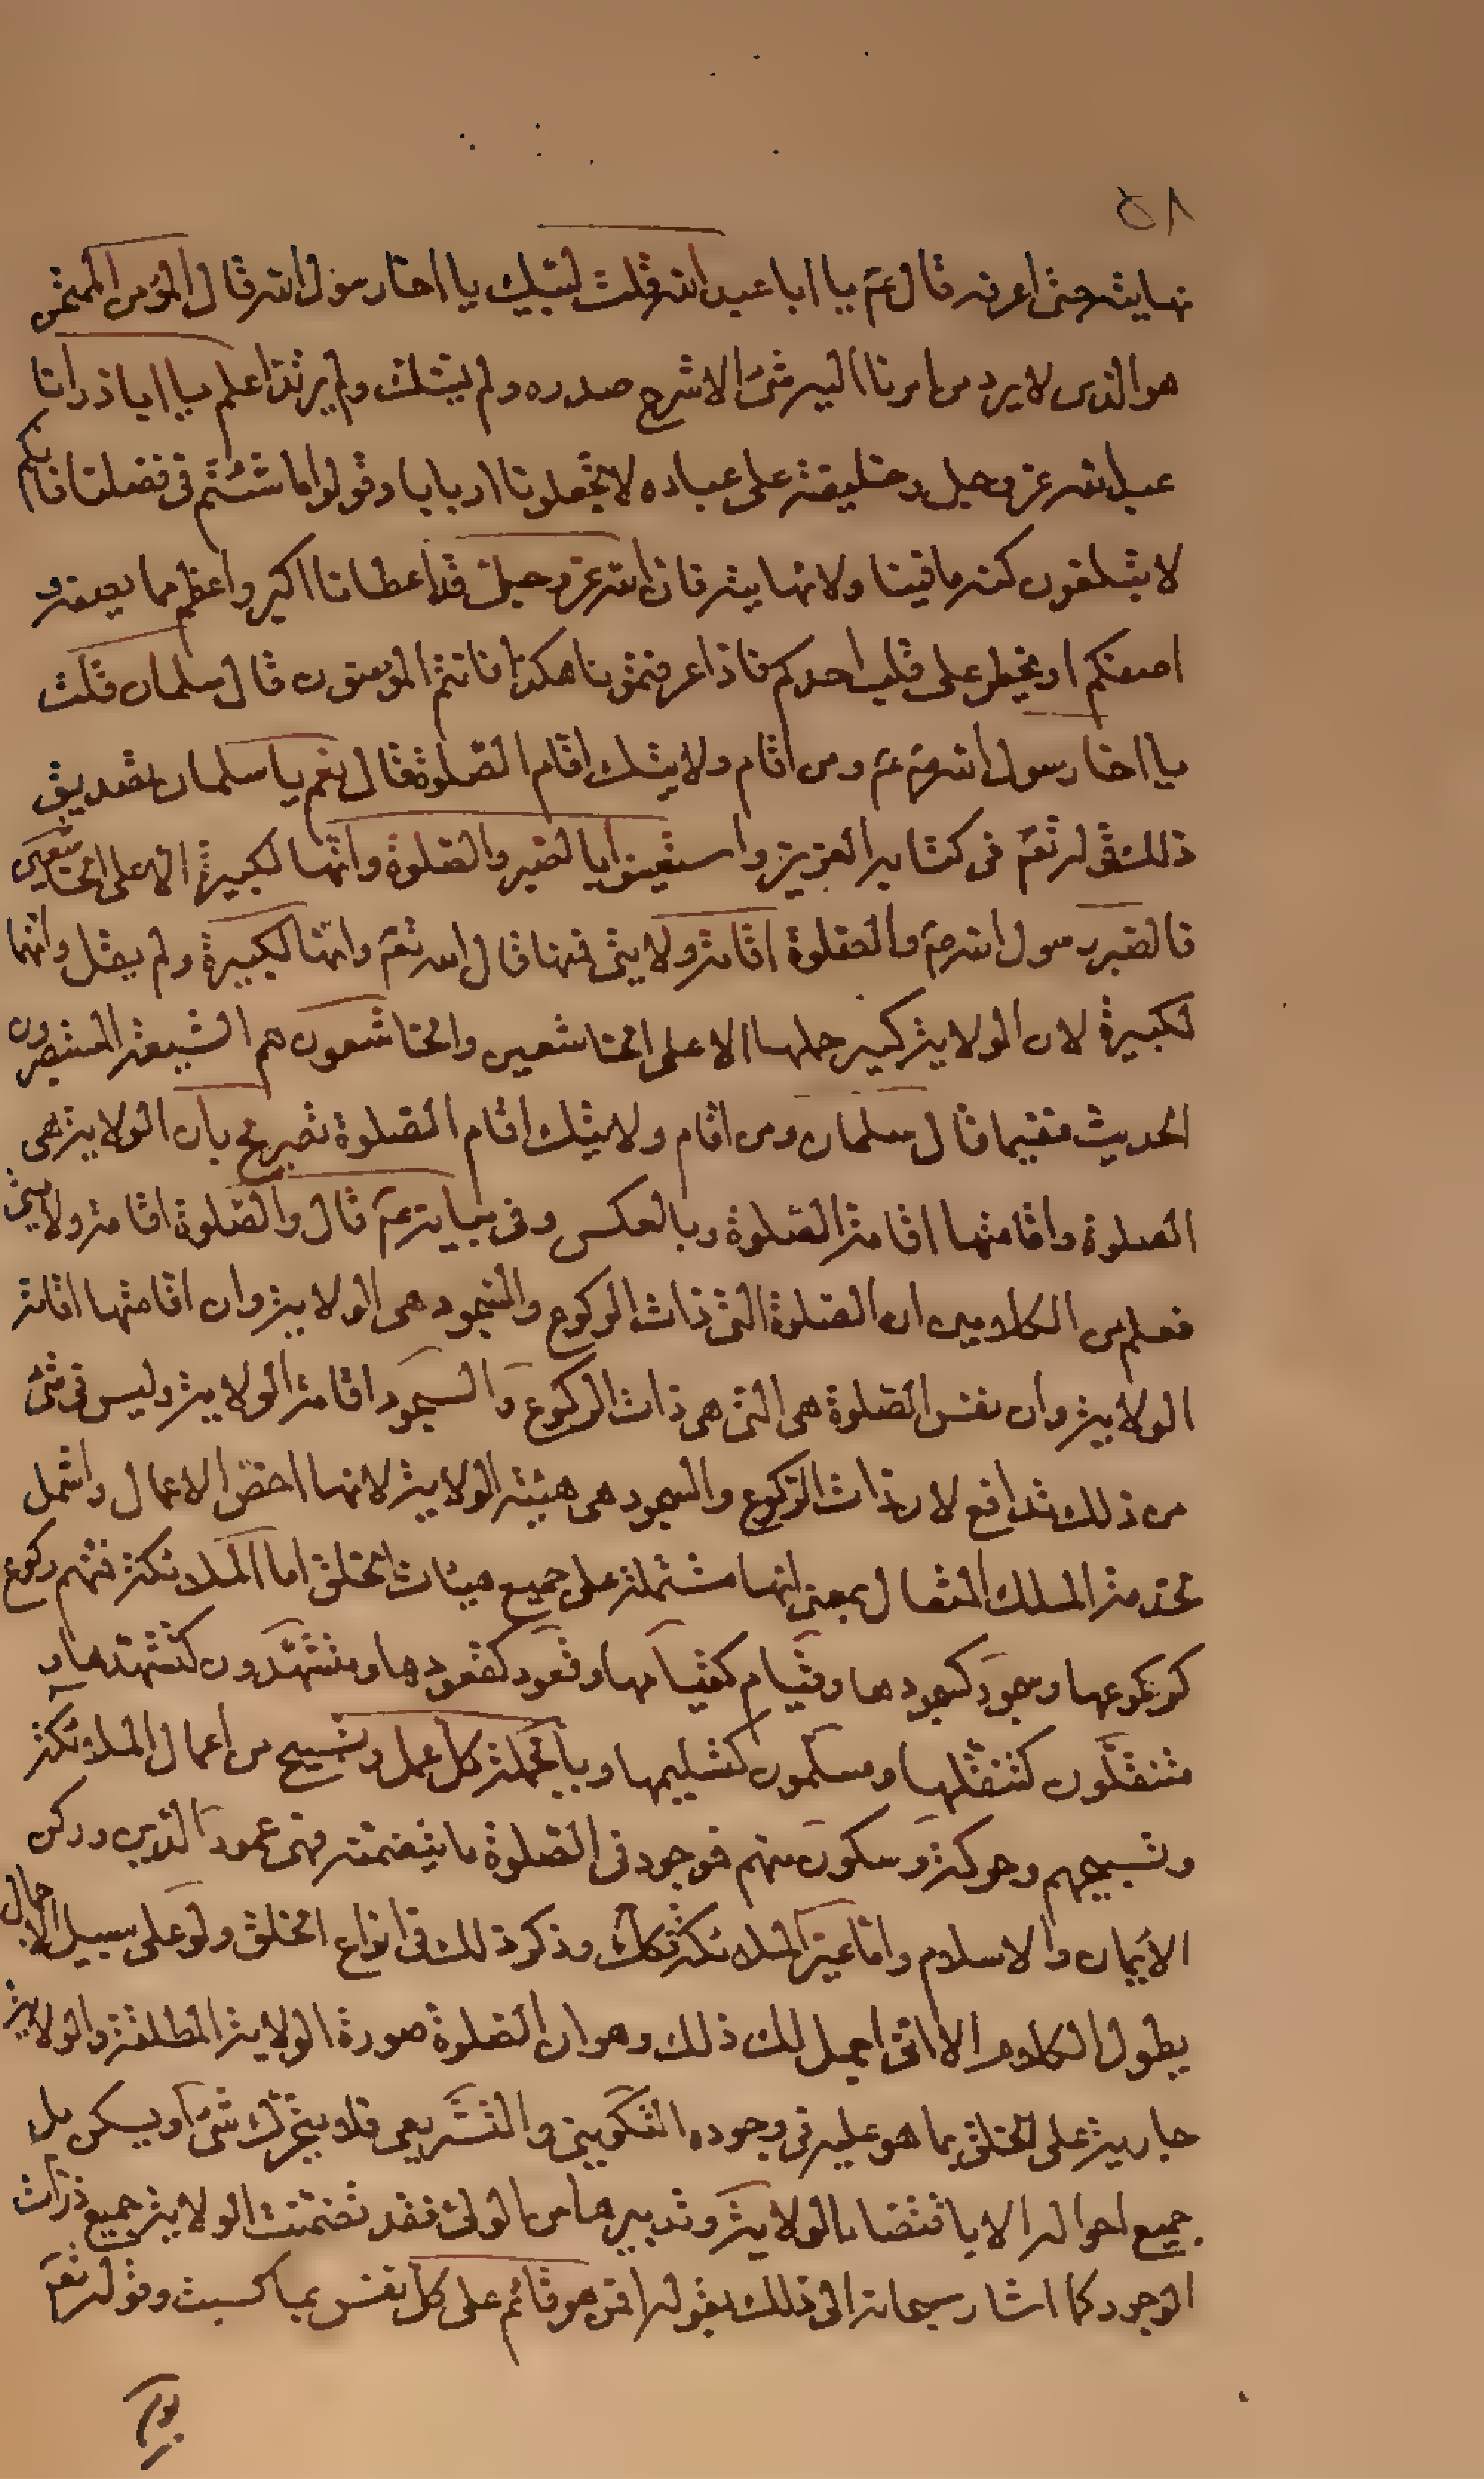 ٥٨
نهايته حتى اعرفه قال عم يا ابا عبد الله قلت لبيك يا اخا رسول الله قال المؤمن الممتحن
هو الذى لا يرد من امرنا اليه شئ الا شرح صدره ولم يشك ولم يرتد اعلم يا اباذر انا
عبد الله عز وجل وخليفته على عباده لا تجعلونا اربابا وقولوا ما شئتم فى فضلنا فانكم
لا تبلغون كنه ما فينا ولا نهايته فان الله عز وجل قد اعطانا اكبر واعظم مما يصفه و
اصفكم او يخطر على قلب احدكم فاذا عرفتمونا هكذا فانتم المومنون قال سلمان قلت
يا اخا رسول الله ص عم ومن اقام ولايتك اقام الصلوة قال نعم يا سلمان تصديق
ذلك قوله تعم فى كتابه العزيز واستعينوا بالصبر والصلوة وانها لكبيرة الا على الخاشعين
فالصبر رسول الله ص والصلوة اقامة ولايتى فمنها قال الله تعم وانها لكبيرة ولم يقل وانهما
لكبيرة لان الولاية كبير حملها الا على الخاشعين والخاشعون هم الشيعة المستبصرون
الحديث ففيما قال سلمان ومن اقام ولايتك اقام الصلوة تصريح بان الولاية هى
الصلوة واقامتها اقامة الصلوة وبالعكس وفى بيانه عم قال والصلوة اقامة ولايتى
فعلم من الكلامين ان الصلوة التى ذات الركوع والسجود هى الولاية وان اقامتها اقامة
الولاية وان نفس الصلوة هى التى هى ذات الركوع والسجود اقامة الولاية وليس فى شئ
من ذلك تدافع لان ذات الركوع والسجود هى هيئة الولاية لانها اخص الاعمال واشمل
خدمة الملك المتعال بمعنى انها مشتملة على جميع هيئات الخلق اما الملائكة فمنهم ركوع
كركوعها وسجود كسجودها وقيام كقيامها وقعود كقعودها ومتشهدون كتشهدها و
متنفلون كتنفلها ومسلمون كتسليمها وبالجملة كل عمل وتسبيح من اعمال الملائكة
وتسبيحهم وحركة وسكون منهم فوجود فى الصلوة ما يتضمنه فهى عمود الدين وركن
الايمان والاسلام واما غير الملائكة فكك وذكر ذلك فى انواع الخلق ولو على سبيل الاجمال
يطول الكلام الا انى اجمل لك ذلك وهو ان الصلوة صورة الولاية المطلقة والولاية
جارية على الخلق بما هو عليه فى وجوده التكوينى والتشريعى فلا يتحرك شئ او يسكن بل
جميع احواله الا باقتضاء الولاية وتدبيرها من الولى فقد تضمنت الولاية جميع ذرات
الوجود كما اشار سبحانه الى ذلك بقوله افمن هو قائم على كل نفس بما كسبت وقوله تعم